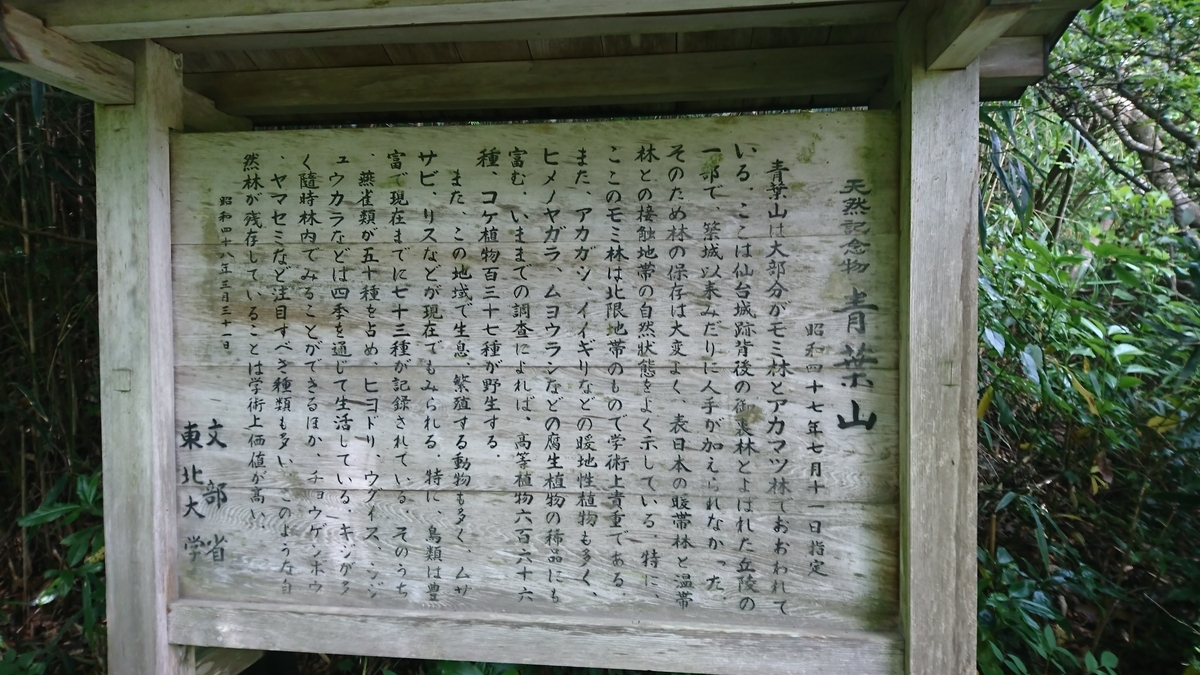 天然記念物 青葉山
昭和四十七年七月十一日指定
青葉山は大部分がモミ林とアカマツ林でおおわれて
いる。ここは仙台城跡背後の御裏林とよばれた丘陵の
一部で、築城以来みだりに人手が加えられなかった。
そのため林の保存は大変よく、表日本の暖帯林と温帯
林との接触地帯の自然状態をよく示している。特に、
ここのモミ林は北限地帯のもので学術上貴重である。
また、アカガシ、イイギリなどの暖地性植物も多く、
ヒメノヤガラ、ムヨウランなどの腐生植物の稀品にも
富む。いままでの調査によれば、高等植物六百六十六
種、コケ植物百三十七種が野生する。
また、この地域で生息、繁殖する動物も多く、ムサ
サビ、リスなどが現在でもみられる。特に、鳥類は豊
富で現在までに七十三種が記録されている。そのうち
、燕雀類が五十種を占め、ヒヨドリ、ウグイス、シジ
ュウカラなどは四季を通じて生活している。キジが多
く随時林内でみることができるほか、チョウゲンボウ
、ヤマセミなど注目すべき種類も多い。このような自
然林が残存していることは学術上価値が高い。
昭和四十八年三月三十一日
文部省
東北大学